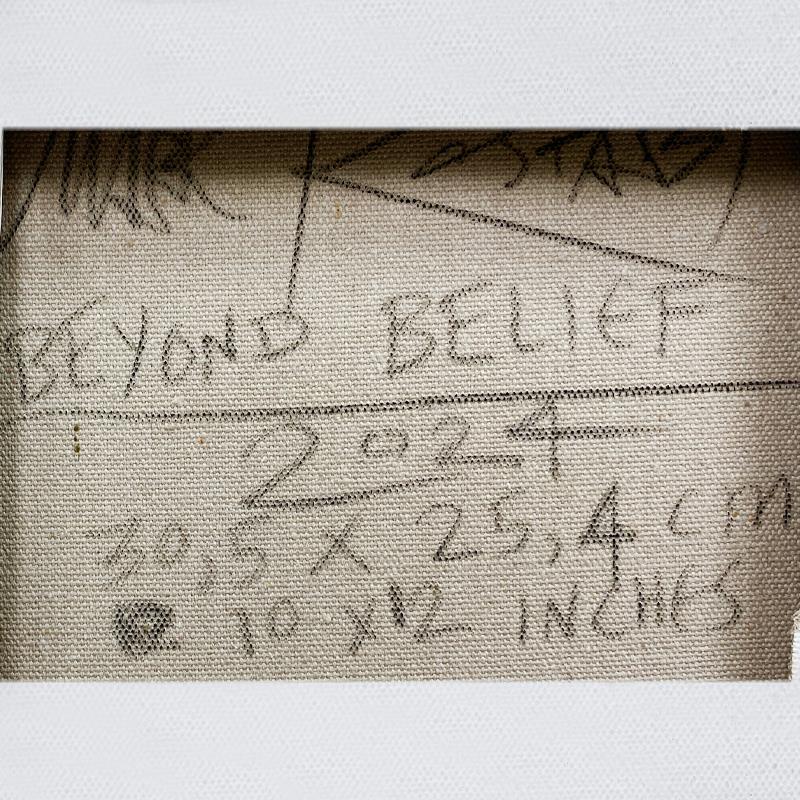 MARK KOSTABI
BEYOND BELIEF
2024
30,5 X 25,4 CM
10 X 12 INCHES